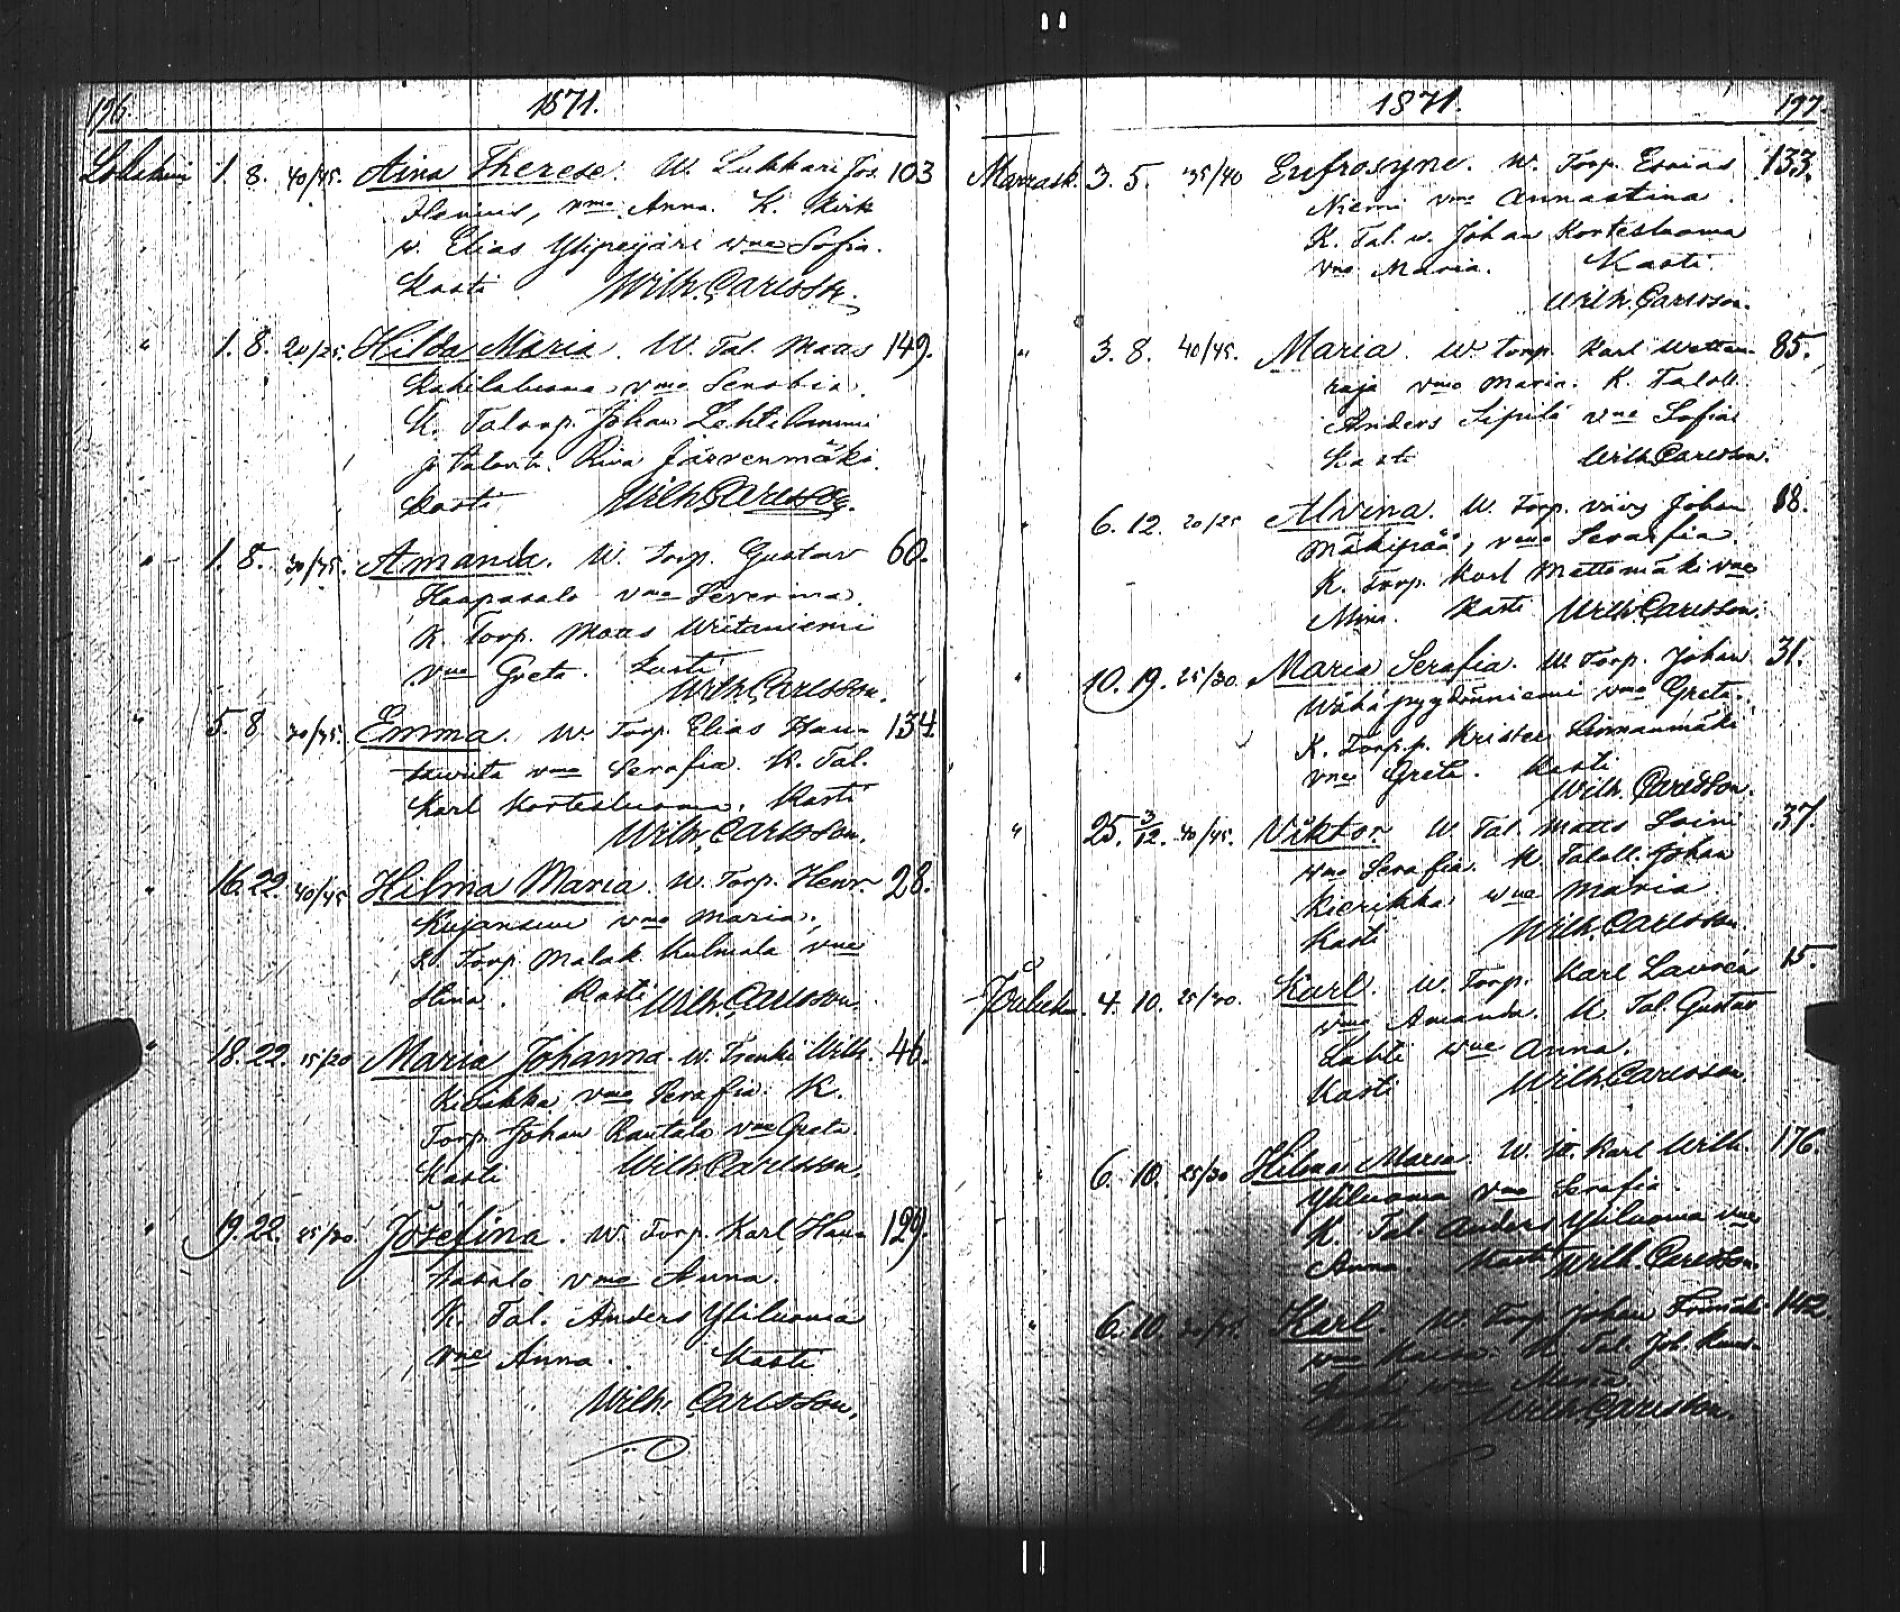 196. 1871.
Lokakuu 1. 8. 40/45. Aina Therese. W. Lukkari Jos. 103
Ilenius, vmo Anna. K. Kirk
v. Elias Ylipeijäri vme Sofia.
Kasti Wilh. Carlsson.
" 1. 8. 20/25. Hilda Maria. W. Tal. Matts 149.
vmo Senobia.
K. Talonp. Johan Lehtilammi
ja talont. Riva Järvenmäki.
Kasti Wilh. Carlsson.
" 1. 8. 30/35. Amanda. W. Torp. Gustav 60.
Haapasalo vmo Severina.
K. Torp. Matts Wiitaniemi
vme Greta. Kasti
Wilh. Carlsson.
" 5. 8 30/35. Emma. W. Torp. Elias Hau- 134.
vmo Serafia. K. Tal.
Karl Kortesluoma. Kasti
Wilh. Carlsson.
" 16. 22. 40/45 Hilma Maria. W. Torp. Henr. 28.
Kujansuu vmo Maria.
K. Torp. Malak. Kulmala vme
Kasti Wilh. Carlsson.
" 18. 22. 15/20 Maria Johanna. W. Wilh. 46.
vmo Serafia. K.
Torp. Johan Rautalo vme Greta.
Kasti Wilh. Carlsson.
" 19. 22. 25/30. Josefina. W. Torp. Karl Hau- 129.
tasalo vmo Anna.
K. Tal. Anders Yliluoma
vme Anna. Kasti
Wilh. Carlsson.
1871. 197.
Marrask. 3. 5. 35/40 Eufrosyne. W. Torp. Esaias 133.
Niemi vmo Annastina.
K. Tal. v. Johan Kortesluoma
vme Maria. Kasti.
Wilh. Carlsson.
" 3. 8. 40/45. Maria. W. Torp. Karl Wetten- 85.
raja vmo Maria. K. Taloll.
Anders Sipilä vme Sofia
Kasti Wilh. Carlsson.
" 6. 12. 20/25 Alvina. W. Torp. vävy Johan 88.
Mäkipää, vmo Serafia.
K. Torp. Karl Mettomäki vme
Mina. Kasti Wilh. Carlsson.
" 10. 19. 25/30. Maria Serafia. W. Torp. Johan 31.
Wähäpyydönniemi vmo Greta.
K. Torp.p. Krister Linnanmäki
vme Greta. Kasti
Wilh. Carlsson.
" 25. 3/12. 40/45. Viktor. W Tal. Matts Loini 37.
vmo Serafia. K Taloll. Johan
Kierikka vme Maria.
Kasti Wilh. Carlsson.
Jouluku. 4. 10. 25/30. Karl. W. Torp. Karl Lavrén 15.
vmo Amanda. K Tal. Gustav
Lahti vme Anna.
Kasti Wilh. Carlsson.
" 6. 10. 25/30 Hilma Maria. W. Karl Wilh. 176.
Yliluoma vmo Serafia.
K. Tal. Anders Yliluoma vme
Anna. Kasti Wilh. Carlsson.
" 6. 10. Karl. W. Torp. Johan
vmo Kaisa. K Tal. Joh.
vme Maria.
Kasti Wilh. Carlsson.